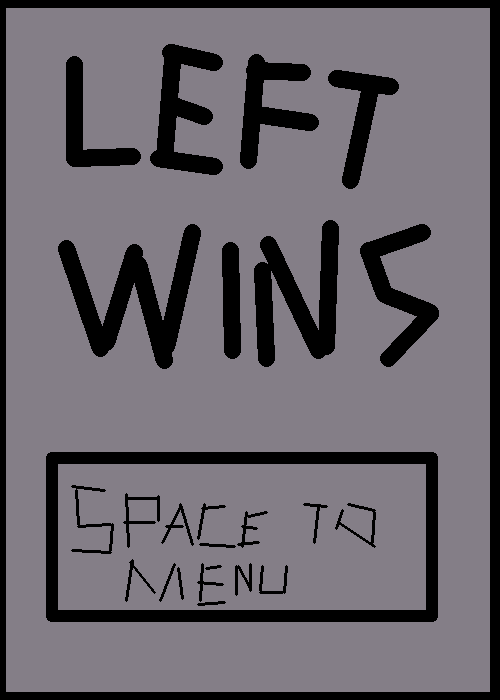 LEFT
WINS
SPACE TO
MENU